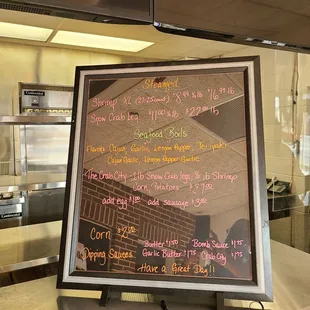 Steamed
Shrimp XL (21-25 count) $8.99 ½ lb $16.99 lb
Snow Crab Leg $11.00 ½ lb $22.00 lb
Seafood Boils
Flavors: Cajun, Garlic, Lemon Pepper, Teriyaki,
Cajun Garlic, Lemon Pepper Garlic
The Crab City - 1 lb Snow Crab Leg, ½ lb Shrimp
Corn, Potatoes
add egg add sausage
Corn
Dipping Sauces Butter Bomb Sauce
Garlic Butter Crab City
Have a Great Day!!